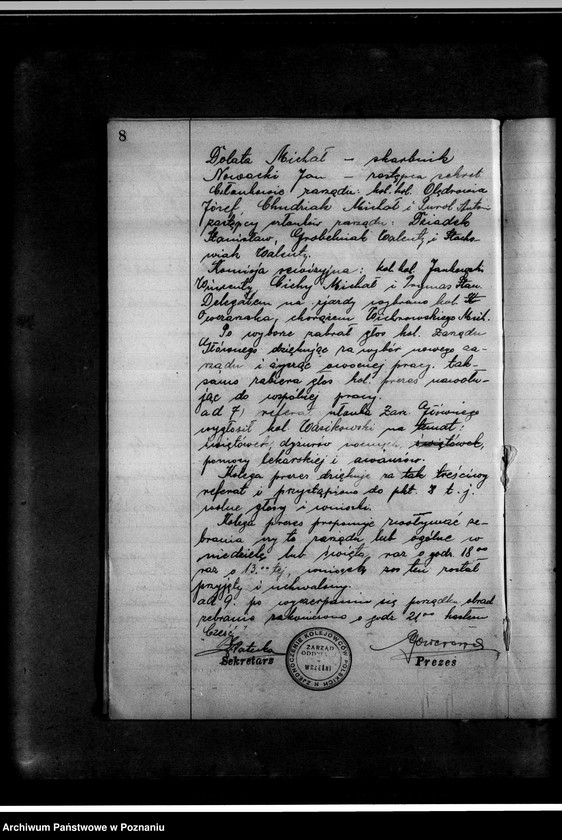 8
Dolata Michał – skarbnik
Nowacki Jan – zastępca sekret
Członkowie zarządu: kol. kol.
Józef, Chudziak Michał i
zastępcy członków zarządu: Dziadek
Stanisław, Grobelniak Walenty i Stacho-
wiak Walenty.
Komisja rewizyjna: kol. kol. Jankowski
Wincenty, Cichy Michał i
Delegatem na zjazdy wybrano kol. St.
chorążem
Po wyborze zabrał głos kol. Zarządu
Głównego dziękując za wybór nowego za-
rządu i życząc owocnej pracy. tak-
samo zabiera głos kol. prezes nawołu-
jąc do wspólnej pracy.
ad 7) referat członka Zarz. Głównego
wygłosił kol. Wasikowski na temat:
świętówek, dyżurów nocnych, świętówek,
pomocy lekarskiej i awansów.
Kolega prezes dziękuje za tak treściwy
referat i przystąpiono do pkt. 8 t. j.
wolne głosy i wnioski.
Kolega prezes proponuje zwoływać ze-
brania czy to zarządu lub ogólne w
niedzielę lub święta, raz o godz. 18⁰⁰
raz o 13.⁰⁰tej, wniosek ten został
przyjęty i uchwalony.
ad 9. po wyczerpaniu się porządku obrad
zebranie zakończono o godz 21⁰⁰ hasłem
Cześć
Sekretarz
ZJEDNOCZENIE KOLEJOWCÓW POLSKICH
ZARZĄD
WRZEŚNI
Prezes
Archiwum Państwowe w Poznaniu